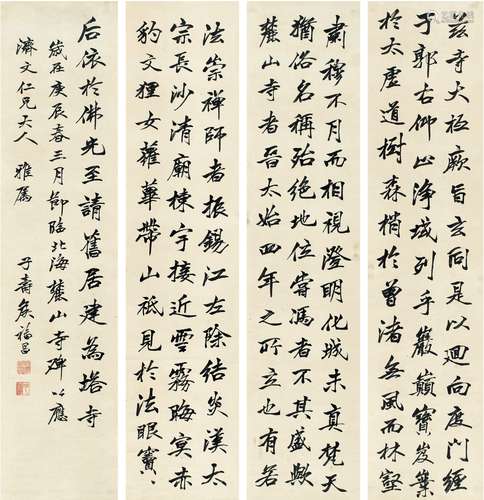 茲寺大抵厥旨玄同是以迴向度門纏
于郭右仰止淨域列乎巖巔寶岌
於太虛道樹森梢於曾渚無風而林壑
肅穆不月而相視澄明化城未真梵天
猶俗名稱殆絕地位嘗馮者不其盛歟
麓山寺者晉太始四年之所立也有若
法崇禪師者振錫江左除結炎漢太
宗長沙清廟棟宇接近雲霧晦冥赤
豹文狸女蘿華帶山祇見於法眼寶
后依於佛光至請舊居建為塔寺
歲在庚辰春三月節臨北海麓山寺碑以應
濟文仁兄大人 雅屬
子壽矦福昌